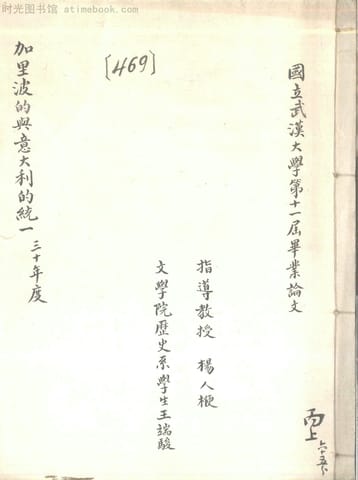 时光图书馆 atimebook.com
國立武漢大學第十一屆畢業論文
〔469〕
指導教授 楊人楩
文學院歷史系學生王端駿
加里波的與意大利的統一 三十年度